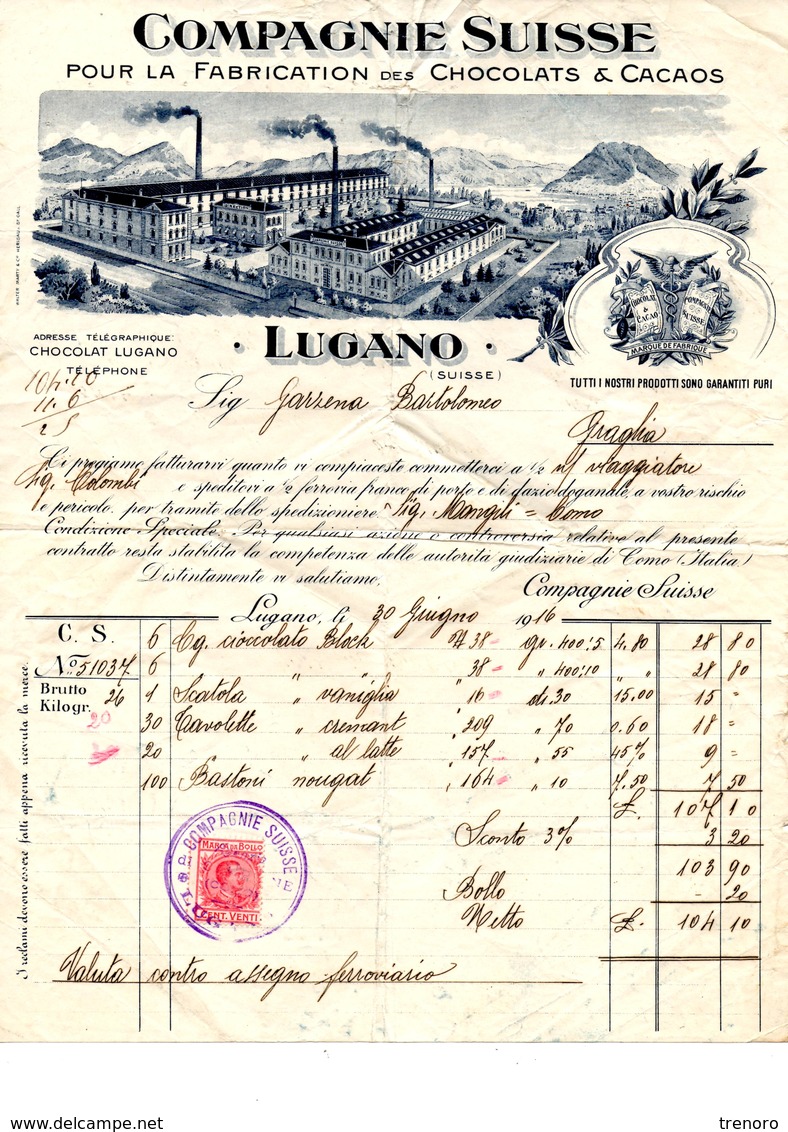 COMPAGNIE SUISSE
POUR LA FABRICATION DES CHOCOLATS & CACAOS
CHOCOLAT & CACAO
COMPAGNIE SUISSE
MARQUE DE FABRIQUE
ADRESSE TÉLÉGRAPHIQUE:
CHOCOLAT LUGANO
TÉLÉPHONE
· LUGANO ·
(SUISSE)
TUTTI I NOSTRI PRODOTTI SONO GARANTITI PURI
104.10
11.6
25
Sig Garzena Bartolomeo
Graglia
Ci pregiamo fatturarvi quanto vi compiaceste commetterci a ½ n/ viaggiatore
Sig. Colombi e speditovi a ½ ferrovia franco di porto e di dazio doganale, a vostro rischio
e pericolo, per tramite dello spedizioniere Sig. Mangili = Como
Condizione Speciale: Per qualsiasi azione o controversia relativa al presente
contratto resta stabilita la competenza delle autorità giudiziarie di Como (Italia.)
Distintamente vi salutiamo.
Compagnie Suisse
Lugano, li 30 Giugno 1916
C. S. 6 Cg. cioccolato Block № 38 gr. 400:5 4.80 28 80
No. 51037 6 " " 38 " 400:10 " " 28 80
Brutto Kilogr. 26 1 Scatola " vaniglia " 16 ds. 30 15.00 15 "
20 30 Tavolette " cremant " 209 " 70 0.60 18 =
20 " al latte " 157 " 55 45% 9 =
100 Bastoni nougat " 164 " 10 7.50 7 50
£. 107 10
Sconto 3% 3 20
103 90
Bollo - 20
Netto £. 104 10
COMPAGNIE SUISSE
MARCA DA BOLLO
CENT. VENTI
Valuta contro assegno ferroviario
I reclami devono essere fatti appena ricevuta la merce.
trenoro